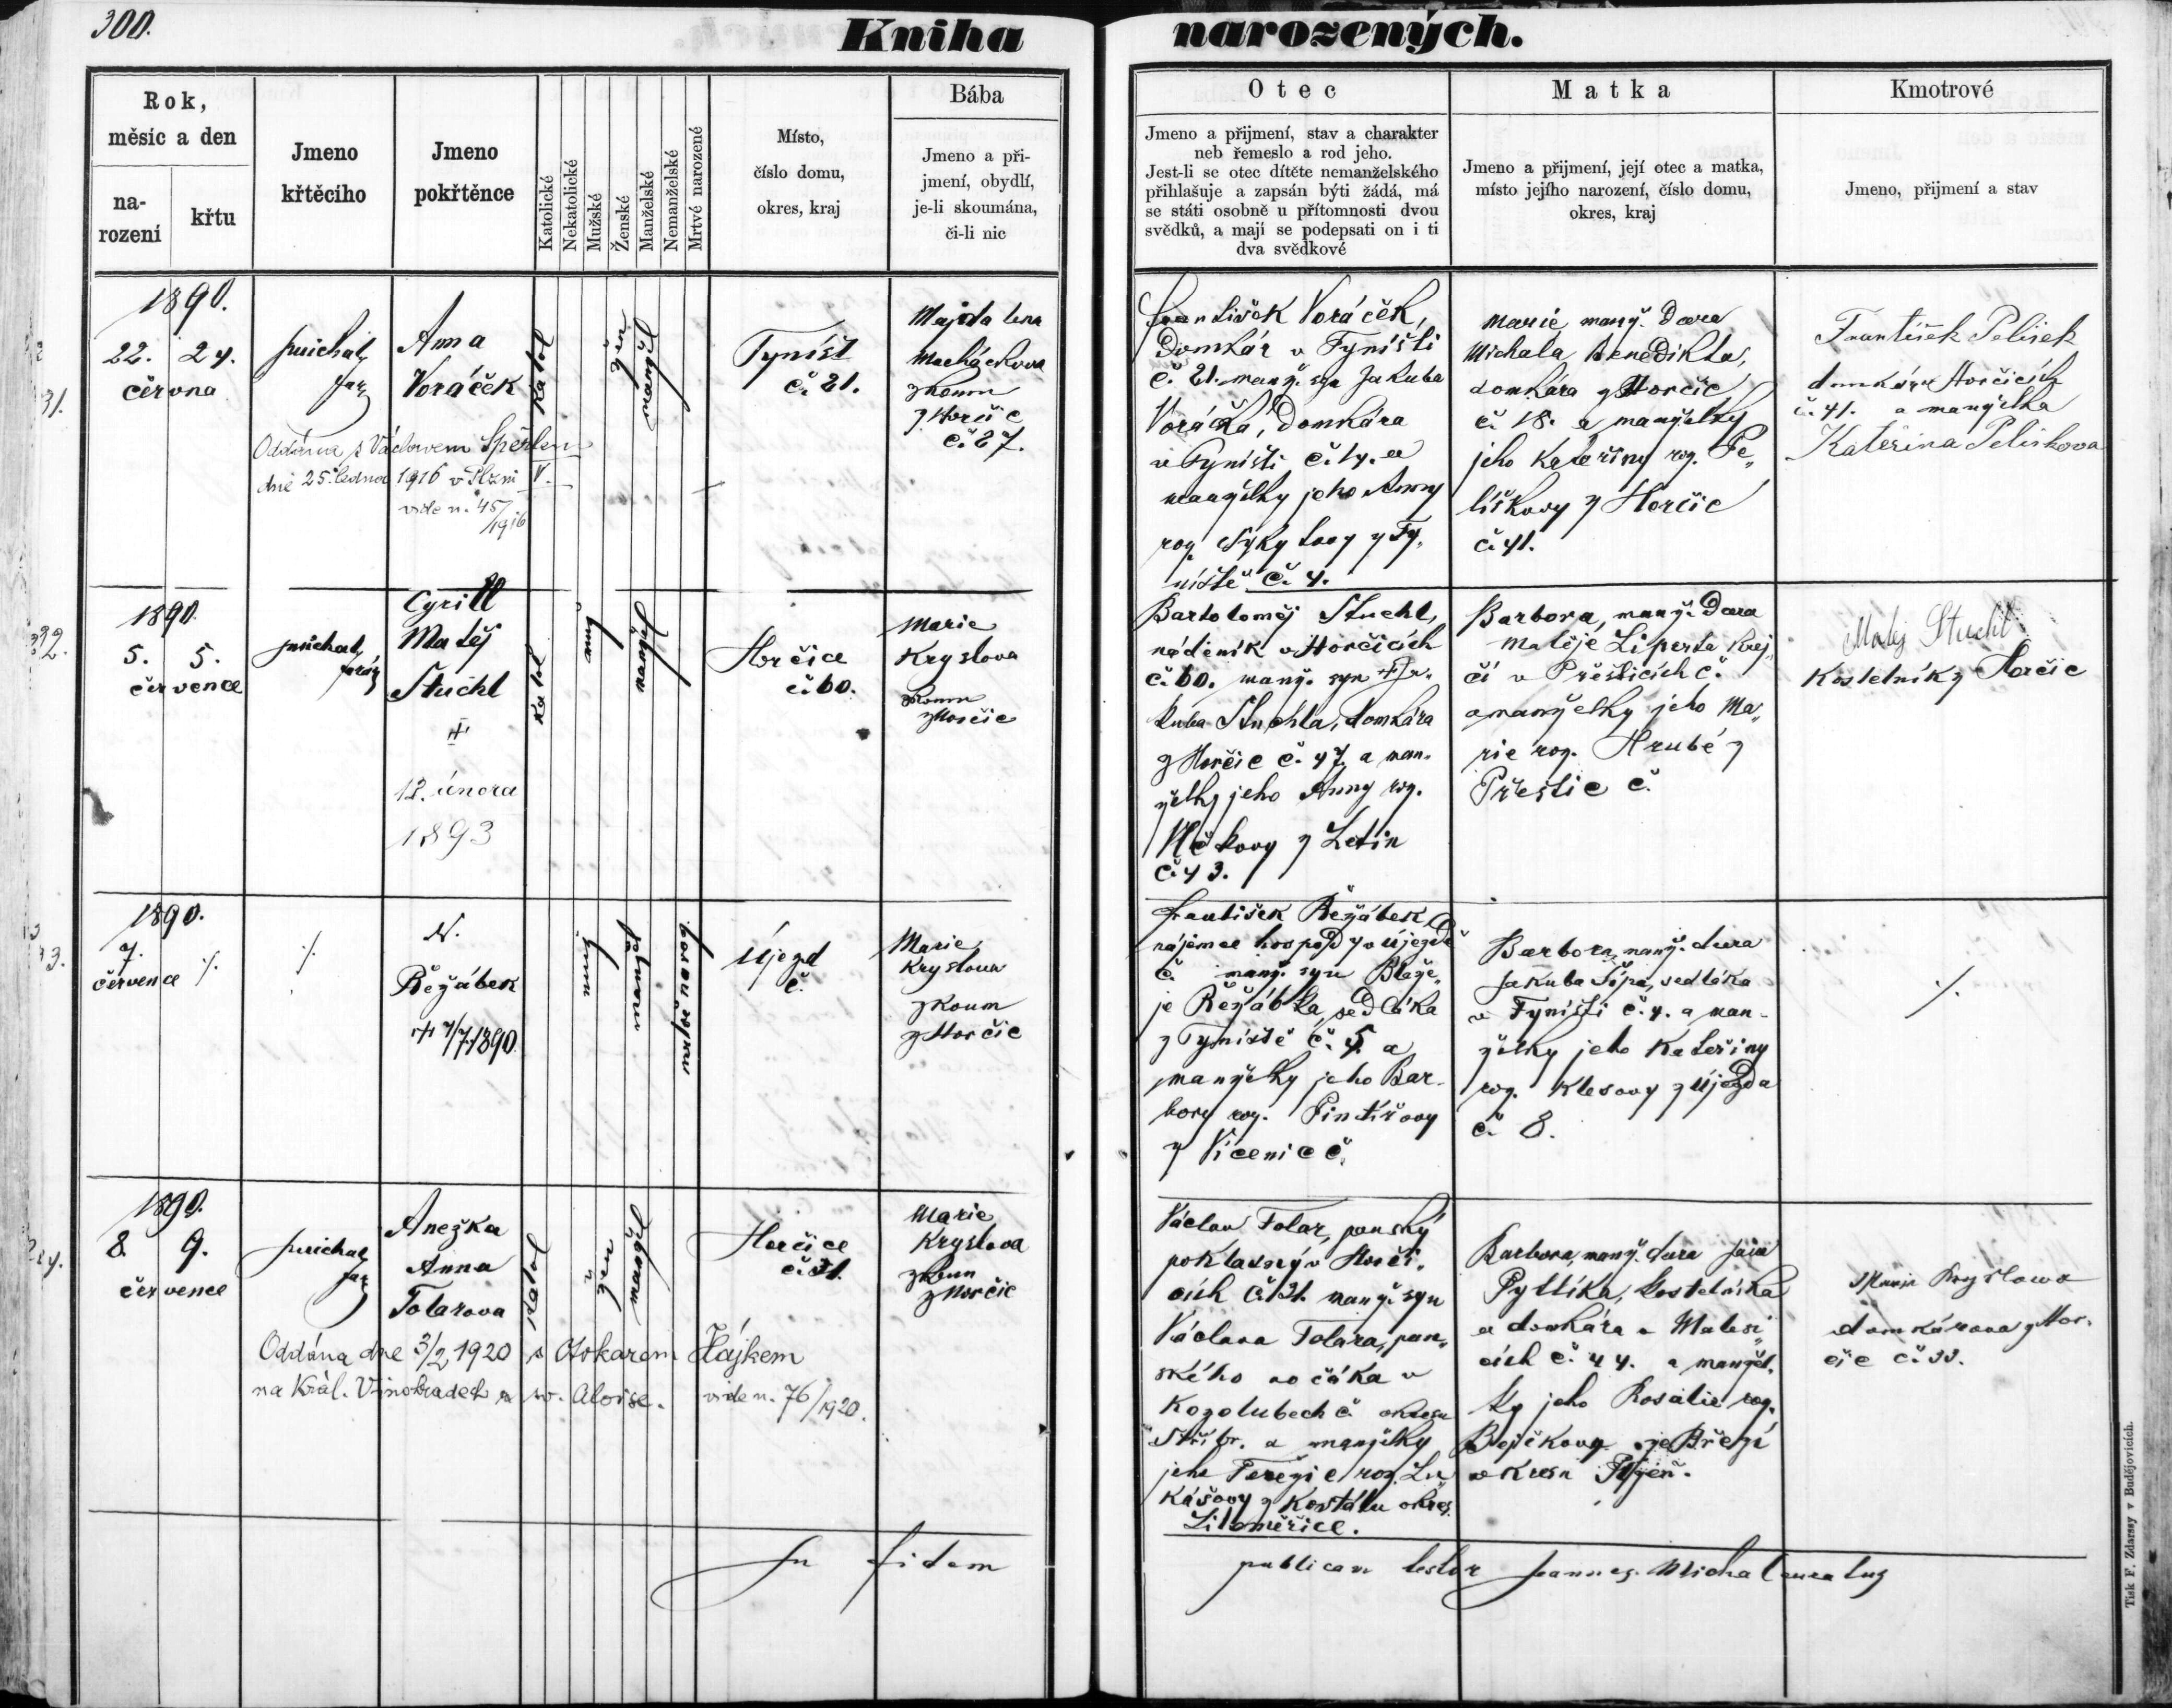 300.
Kniha narozených.
Rok,
měsíc a den
na-
rození
křtu
Jmeno
křtěcího
Jmeno
pokřtěnce
Katolické
Nekatolické
Mužské
Ženské
Manželské
Nemanželské
Mrtvé narozené
Místo,
číslo domu,
okres, kraj
Bába
Jmeno a při-
jmení, obydlí,
je-li skoumána,
či-li nic
Otec
Jmeno a přijmení, stav a charakter
neb řemeslo a rod jeho.
Jest-li se otec dítěte nemanželského
přihlašuje a zapsán býti žádá, má
se státi osobně u přítomnosti dvou
svědků, a mají se podepsati on i ti
dva svědkové
Matka
Jmeno a přijmení, její otec a matka,
místo jejího narození, číslo domu,
okres, kraj
Kmotrové
Jmeno, přijmení a stav
31.
1890.
22. 24.
června
Michal
far
Anna
Voráček
katol
žen
manžel
Týništ
č. 21.
Majdalena
Macháčkova
zkoum
z Horčic
č. 27.
Oddána s Václavem Spěrlem
dne 25. ledna 1916 v Plzni
vide n. 45/1916
František Voráček,
Domkár v Týništi
č. 21. manž. syn Jakuba
Voráčka, Domkára
v Týništi č. 14. a
manželky jeho Anny
roz. Sýkytovy z Tý-
niště č. 4.
Marie, manž. Dcera
Michala Benedikta,
domkára z Horčic
č. 18. a manželky
jeho Kateřiny roz. Pe-
líškovy z Horčic
č. 41.
František Pelišek
domkár v Horčicích
č. 41. a manželka
Kateřina Peliskova
32.
1890
5. 5.
července
Michal
farář
Cyrill
Matěj
Stuchl
12. února
1893
katol
muž
manžel
Horčice
č. 60.
Marie
Kryslova
zkoum
z Horčic
Bartoloměj Stuchl,
nádeník v Horčicích
č. 60. manž. syn Ja-
kuba Stuchla, domkára
z Horčic č. 47. a man-
želky jeho Anny roz.
Vlčkovy z Letin
č. 43.
Barbora, manž. Dcera
Matěje Liperta Krej-
čí v Přešticích č.
a manželky jeho Ma-
rie roz. Hrubé z
Přeštic č.
Matej Stuchl
Kostelník z Horčic
33.
1890.
7. ⁒
července
⁒
N.
Řežábek
7/7 1890
muž
manžel
mrtvě narozen
Újezd
č.
Marie
Kryslova
zkoum
z Horčic
František Řežábek
nájemce hospody v Újezdě
č. manž. syn Blaže-
je Řežábka, sedláka
z Týniště č. 5. a
manželky jeho Bar-
bory roz. Pintířovy
z Vícenic č.
Barbora, manž. dcera
Jakuba Šípa, sedláka
v Týništi č. 4. a man-
želky jeho Kateřiny
roz. Klesovy z Újezda
č. 8.
⁒
34.
1890.
8. 9.
července
Michal
far
Anežka
Anna
Tolarova
katol
žen
manžel
Horčice
č. 31.
Marie
Kryslova
zkoum
z Horčic
Oddána dne 3/2 1920 s Otokarem Hájkem
na Král. Vinohradech u sv. Aloise. vide n. 76/1920.
Václav Tolar, panský
poklasný v Horči-
cích č. 31. manž. syn
Václava Tolara, pan-
ského ovčáka v
Kozolubech č. okresu
Stříbr. a manželky
jeho Terezie roz. Lu
kášovy z Košťálu okres.
Litoměřice.
Barbora, manž. dcera Jana
Pytlíka, kostelníka
a domkára v Malesi-
cích č. 44. a manžel-
ky jeho Rosalie roz.
Bejčkovy ze Březí
okresu Plzeň.
Marie Kryslowa
domkárova z Hor-
čic č. 33.
In fidem publicam testor Joannes Michal curatus
Tisk F. Zdarssy v Budějovicích.